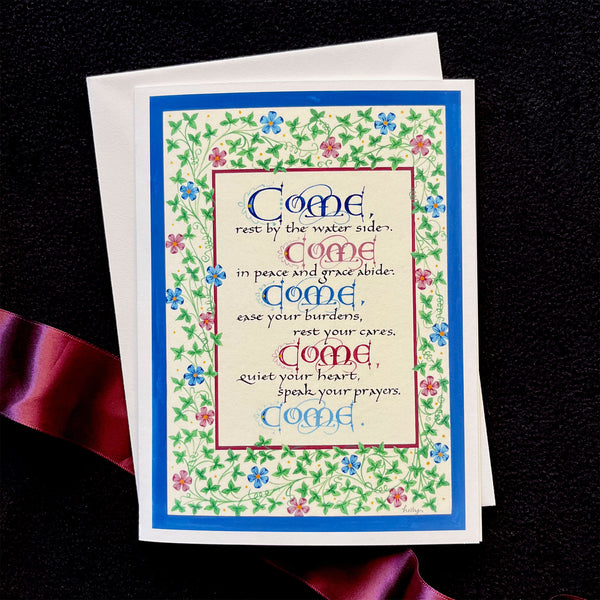 Come,
rest by the water side.
Come
in peace and grace abide.
Come,
ease your burdens,
rest your cares.
Come,
quiet your heart,
speak your prayers.
Come.